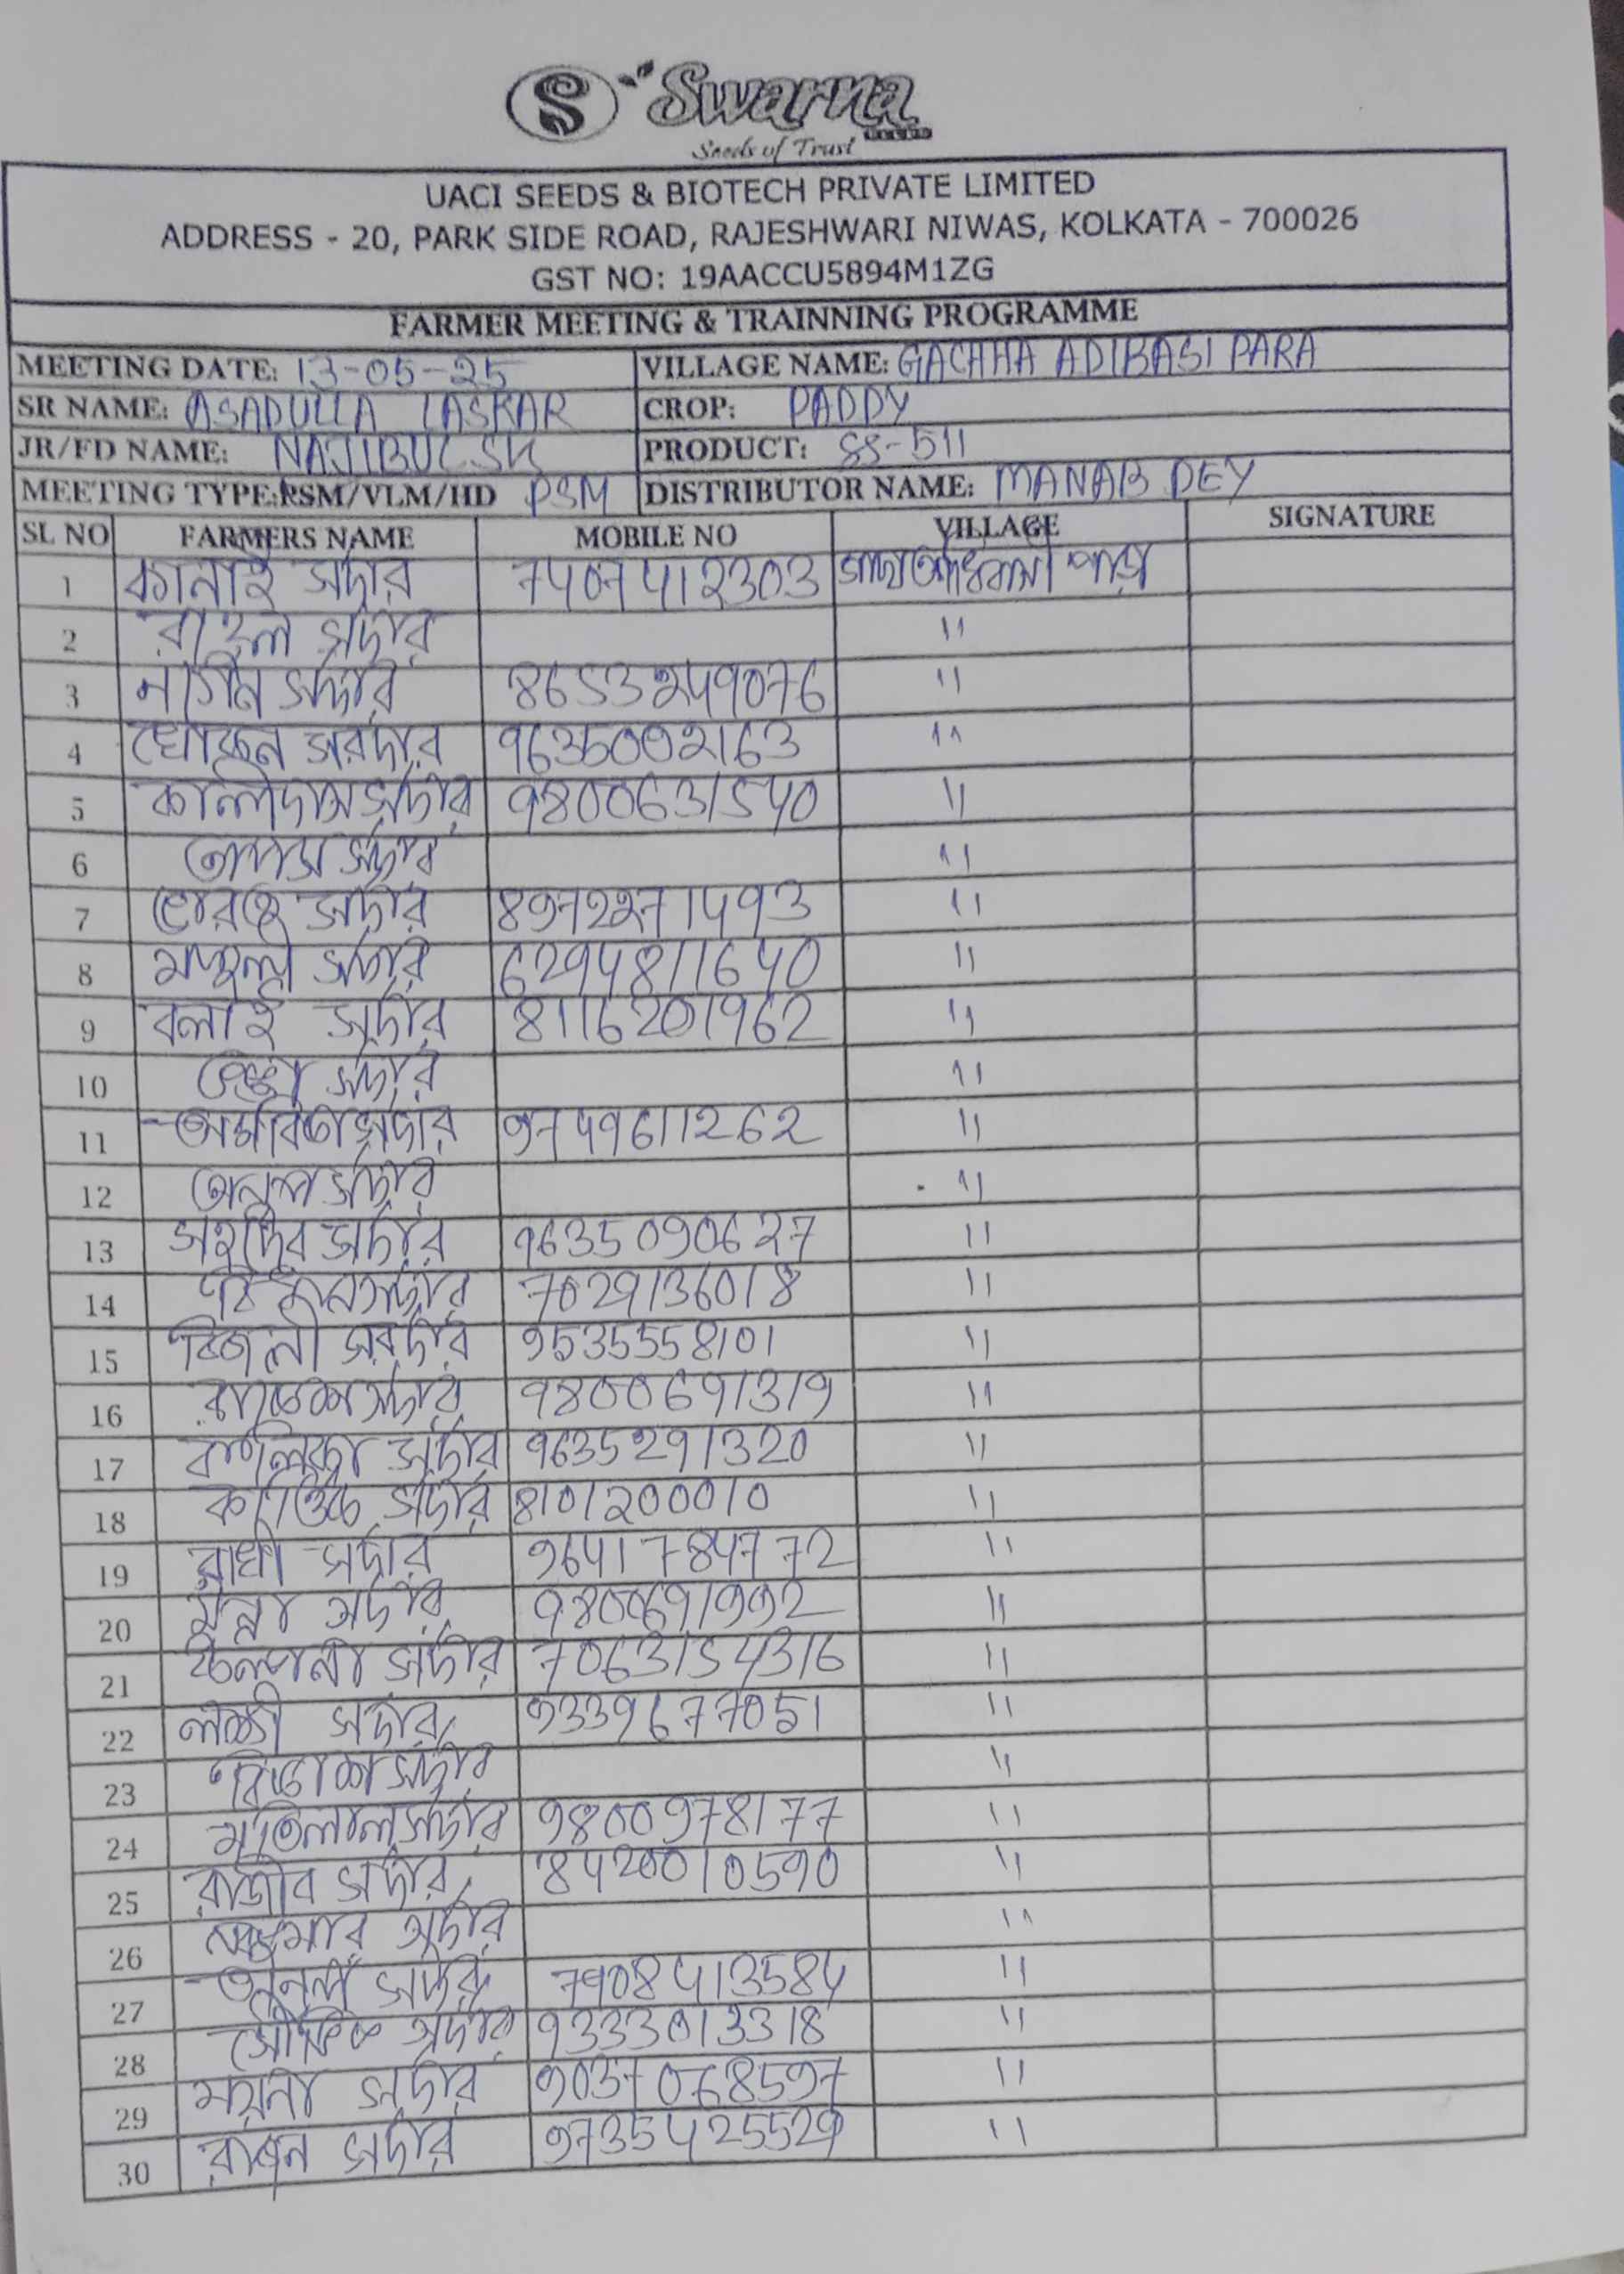 S Swarna
Seeds of Trust
UACI SEEDS & BIOTECH PRIVATE LIMITED
ADDRESS - 20, PARK SIDE ROAD, RAJESHWARI NIWAS, KOLKATA - 700026
GST NO: 19AACCU5894M1ZG
FARMER MEETING & TRAINNING PROGRAMME
MEETING DATE: 13-05-25 VILLAGE NAME: GACHHA ADIBASI PARA
SR NAME: ASADULLA LASKAR CROP: PADDY
JR/FD NAME: NAJIBUL SK PRODUCT: SS-511
MEETING TYPE:PSM/VLM/HD PSM DISTRIBUTOR NAME: MANAB DEY
SL NO FARMERS NAME MOBILE NO VILLAGE SIGNATURE
1 কানাই সর্দার 7407412303 পাড়া
2 রাহুল সর্দার "
3 সর্দার 8653249076 "
4 সরদার 9635002163 "
5 কালিদাস সর্দার 9800631540 "
6 তাপস সর্দার "
7 সর্দার 8972271493 "
8 সর্দার 6294811640 "
9 বলাই সর্দার 8116201962 "
10 সর্দার "
11 সর্দার 9749611262 "
12 অনুপ সর্দার "
13 সহদেব সর্দার 9635090627 "
14 সর্দার 7029136018 "
15 বিজলী সরদার 9535558101 "
16 সর্দার 9800691319 "
17 সর্দার 9635291320 "
18 কার্ত্তিক সর্দার 8101200010 "
19 রাধা সর্দার 9641784772 "
20 মুন্না সর্দার 9800691992 "
21 কল্পনা সর্দার 7063154316 "
22 লক্ষ্মী সর্দার 9339677051 "
23 সর্দার "
24 মতিলাল সর্দার 9800978177 "
25 রাজীব সর্দার 8420010590 "
26 সর্দার "
27 সর্দার 7908413584 "
28 সৌভিক সর্দার 9333013318 "
29 ময়না সর্দার 9037068597 "
30 সর্দার 9735425529 "